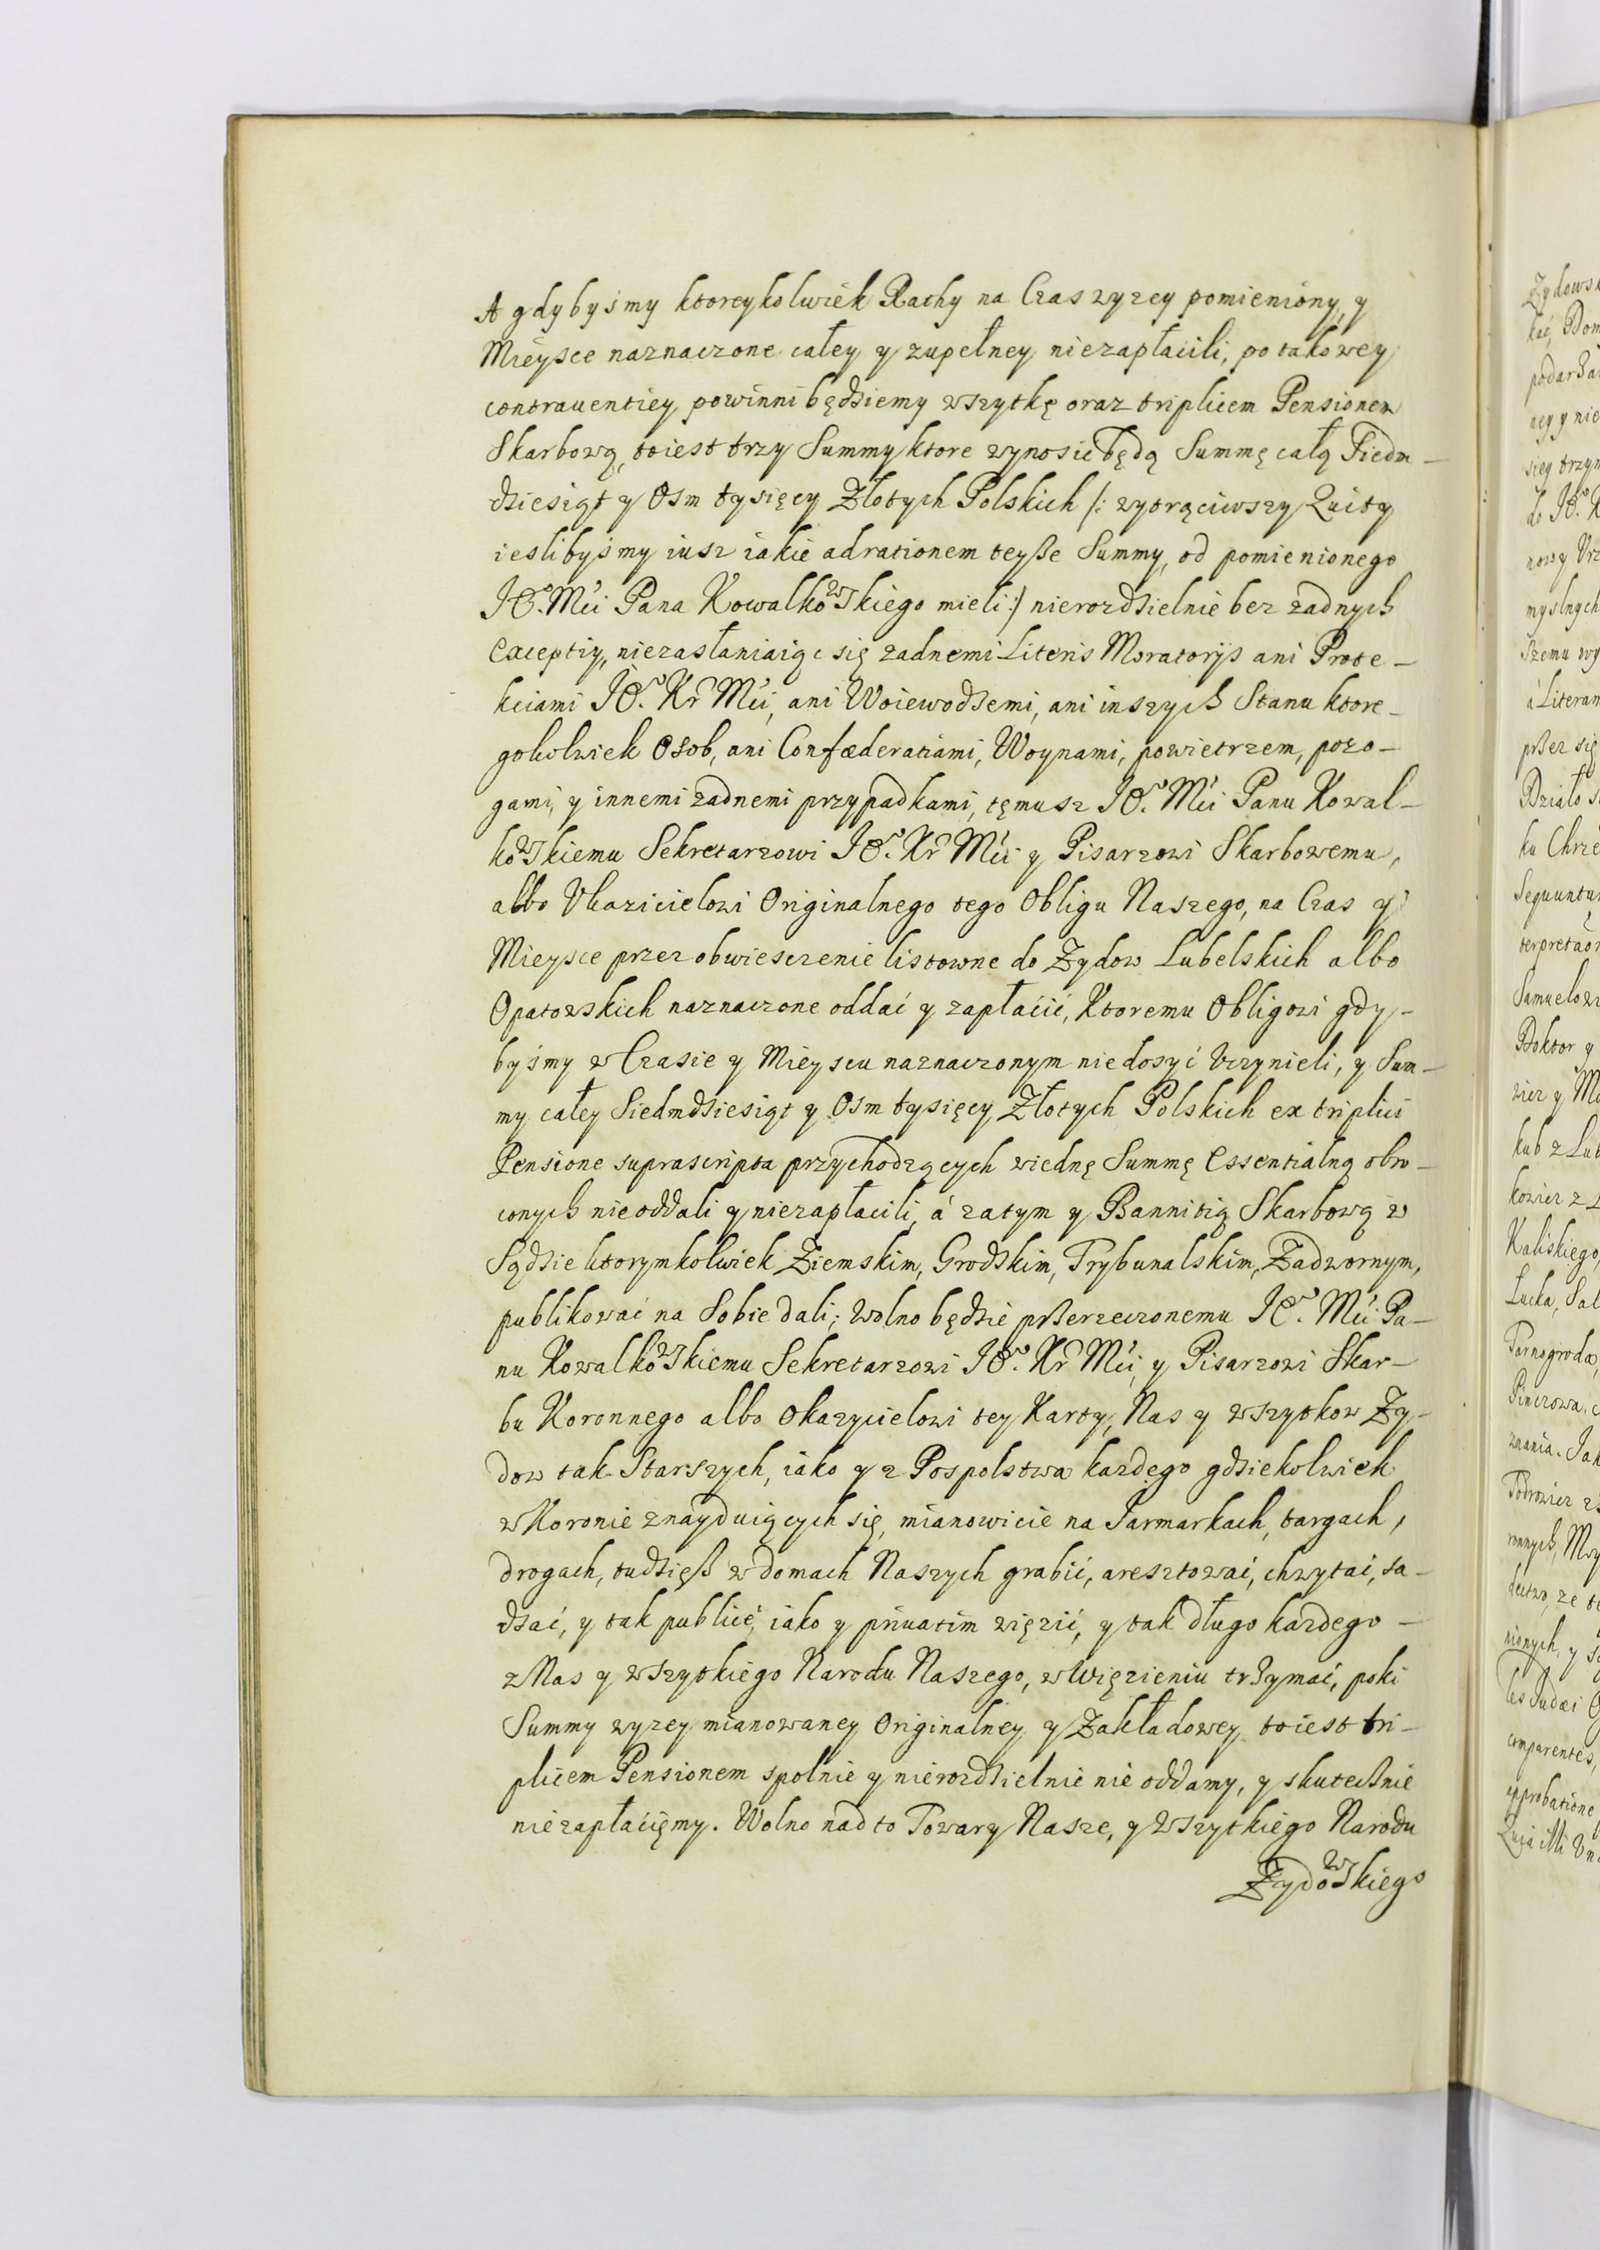 A gdybyśmy ktoreykolwiek Rathy na Czas wyzey pomieniony, y
Mieysce naznaczone całey y zupełney niezapłacili, po takowey
contrauentiey powinni będziemy wszytkę oraz triplicem Pensionem
Skarbową, toiest trzy Summy ktore wynosić będą Summę całą Siedm-
dziesiąt y Osm tysięcy Złotych Polskich /: wytrąciwszy Quity
ieslibyśmy iusz iakie ad rationem teyße Summy, od pomienionego
JO. Mći Pana Kowalkowskiego mieli :/ nierozdzielnie bez zadnych
Exceptiy, niezasłaniaiąc się zadnemi Literis Moratorijs ani Prote-
kciami JO. Kr Mći, ani Woiewodzemi, ani inszych Stanu ktore-
gokolwiek Osob, ani Confæderatiami, Woynami, powietrzem, pozo-
gami, y innemi zadnemi przypadkami, tęmusz JO. Mći Panu Kowal-
kowskiemu Sekretarzowi JO. Kr Mći y Pisarzowi Skarbowemu,
albo Ukazicielowi Originalnego tego Obligu Naszego, na Czas y
Mieysce przez obwieszczenie listowne do Zydow Lubelskich albo
Opatowskich naznaczone oddać y zapłacić, Ktoremu Obligowi gdy-
byśmy w Czasie y Mieyscu naznaczonym niedosyć Vczynieli, y Sum-
my całey Siedmdziesiąt y Osm tysięcy Złotych Polskich ex triplici
Pensione suprascripta przychodzących wiednę Summę Essentialną obro-
conych nieoddali y niezapłacili, á zatym y Bannitią Skarbową w
Sądzie ktorymkolwiek Ziemskim, Grodzkim, Trybunalskim, Zadwornym,
publikować na Sobie dali; Wolno będzie pßerzeczonemu JO. Mći Pa-
nu Kowalkowskiemu Sekretarzowi JO. Kr Mći, y Pisarzowi Skar-
bu Koronnego albo Okazycielowi tey Karty, Nas y wszytkow Zy-
dow tak Starszych, iako y z Pospolstwa kazdego gdziekolwiek
w Koronie znayduiących się, mianowicie na Jarmarkach, targach,
drogach, tudzięß w domach Naszych grabić, aresztować, chwytać, sa-
dzać, y tak publicè, iako y priuatim więzić, y tak długo kazdego -
z Nas y wszytkiego Narodu Naszego, w Więzieniu trzymać, poki
Summy wyzey mianowaney Originalney y Zakładowey toiest tri-
plicem Pensionem spolnie y nierozdzielnie nie oddamy, y skuteßnie
niezapłacięmy. Wolno nad to Towary Nasze, y Wszytkiego Narodu
Zydowskiego